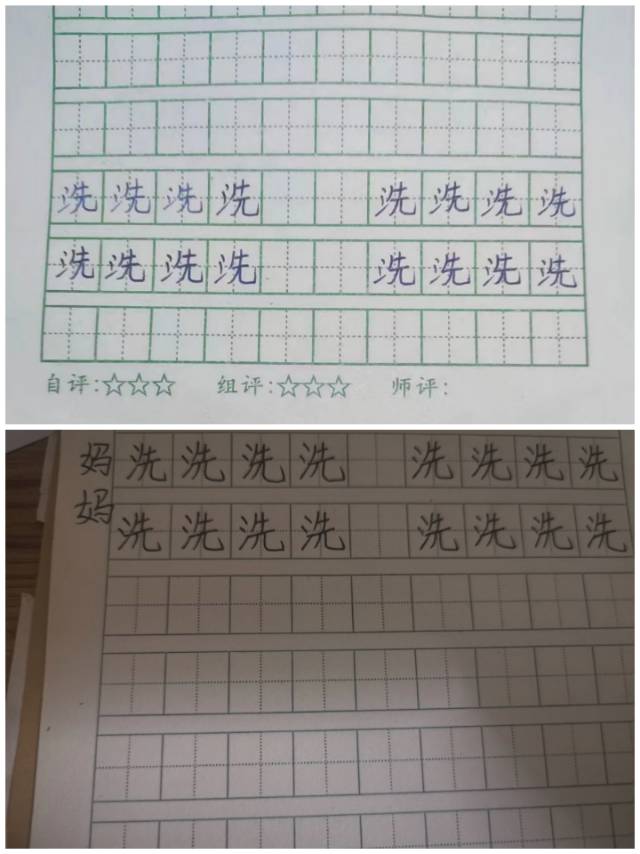 洗洗洗洗 洗洗洗洗
洗洗洗洗 洗洗洗洗
自评:☆☆☆ 组评:☆☆☆ 师评:
妈洗洗洗洗 洗洗洗洗
妈洗洗洗洗 洗洗洗洗